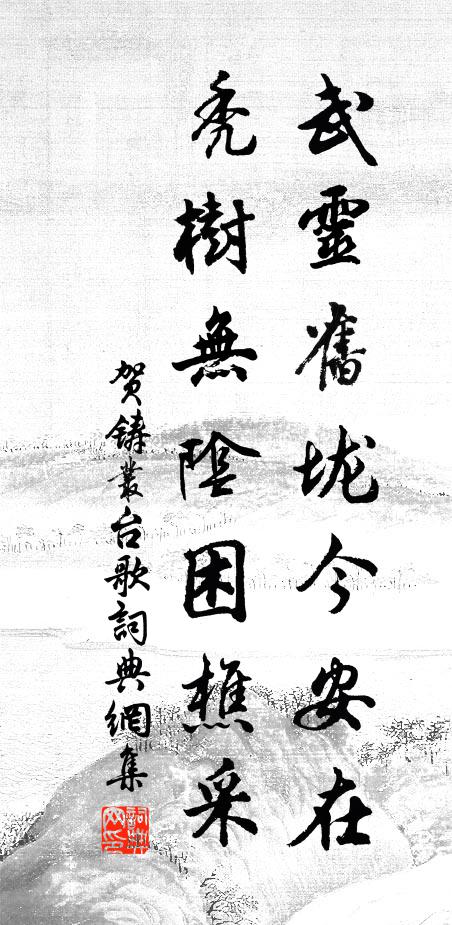 武靈舊垅今安在
秃樹無陰困樵采
贺鑄叢台歌詞典網集